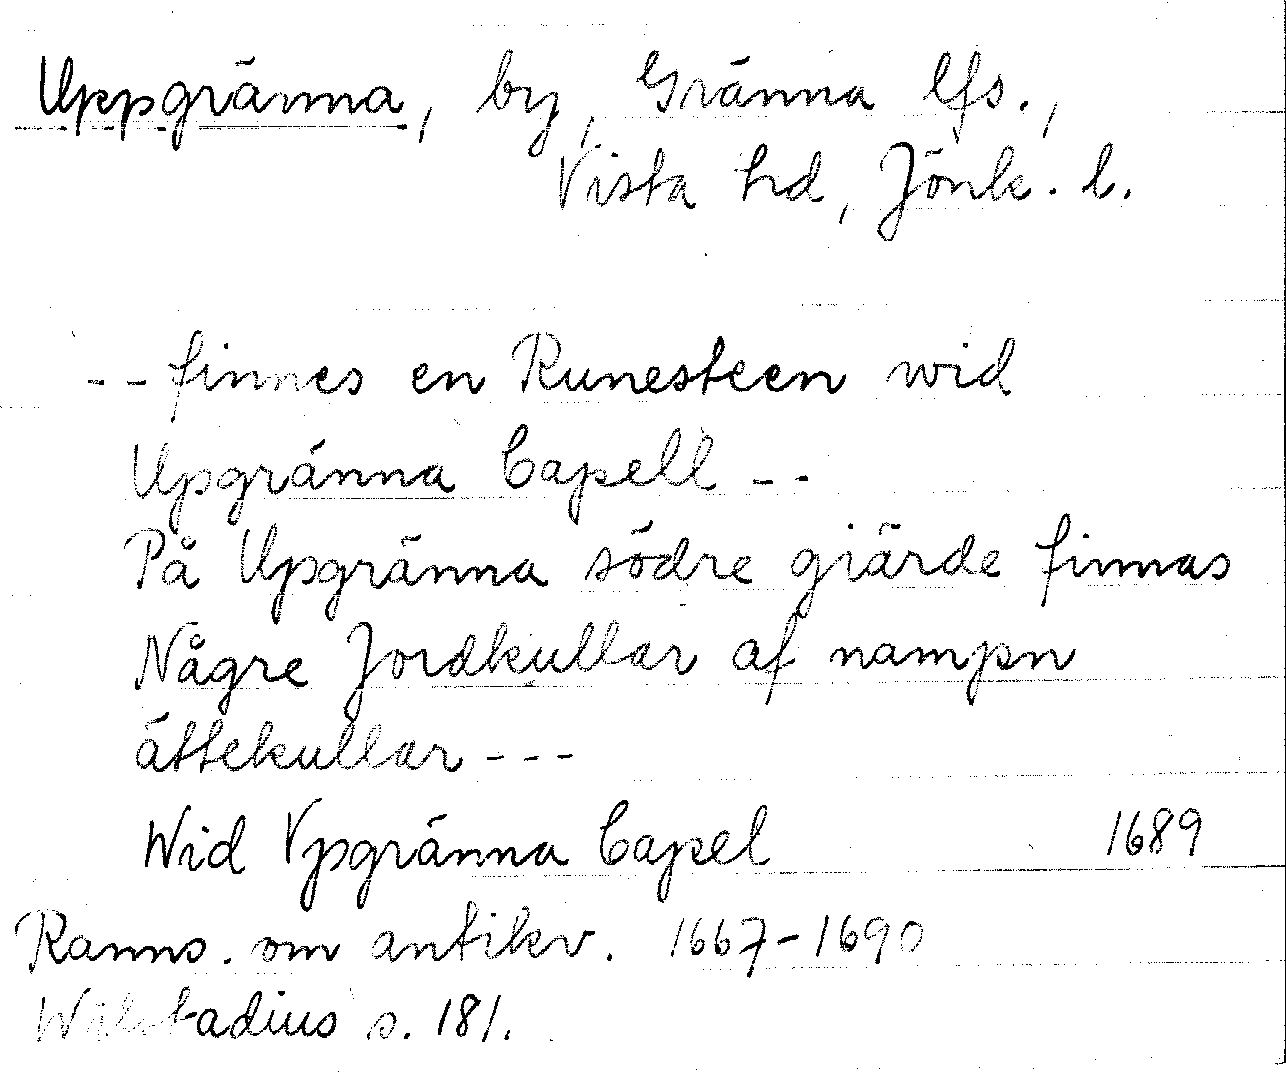 Uppgränna, by, Gränna lfs.,
Vista hd, Jönk. l.
-- finnes en Runesteen wid
Upgränna Capell --
På Upgränna södre giärde finnas
Någre Jordkullar af nampn
ättekullar ---
Wid Vpgränna Capel 1689
Ranns. om antikv. 1667-1690
Wilstadius s. 181.